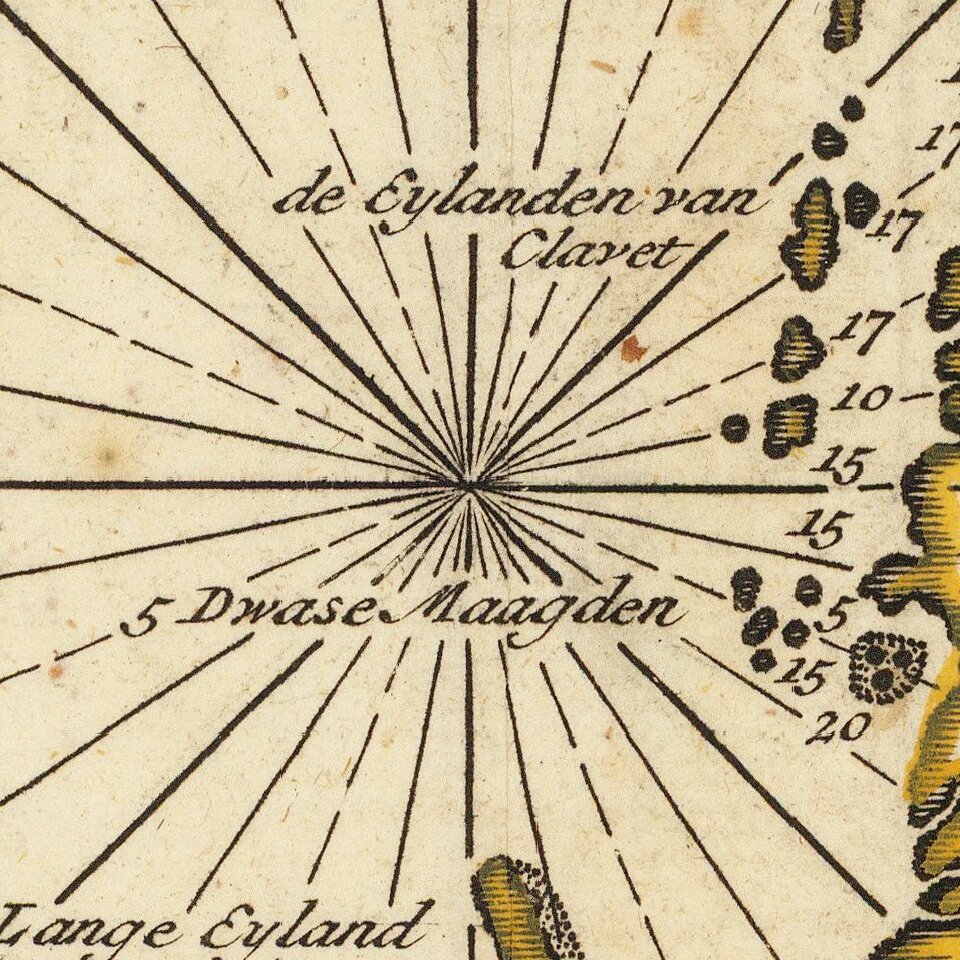 17
de Eylanden van
17
Clavet
17
10
15
15
5 Dwase Maagden
5
15
20
Lange Eyland